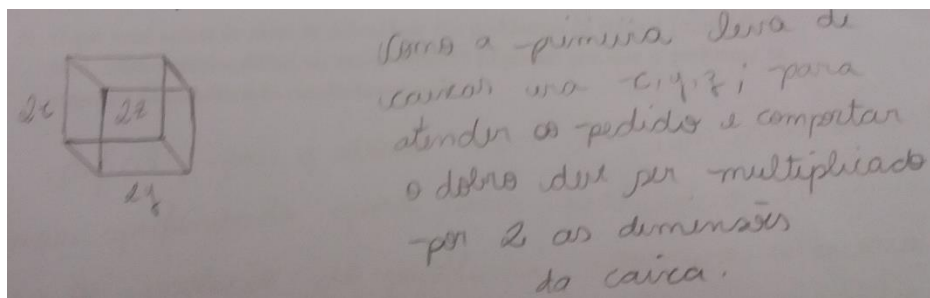 Como a primeira leva de
caixas era x, y, z; para
atender os pedidos e comportar
o dobro deve ser multiplicado
por 2 as dimensões
da caixa.
2x
2z
2y